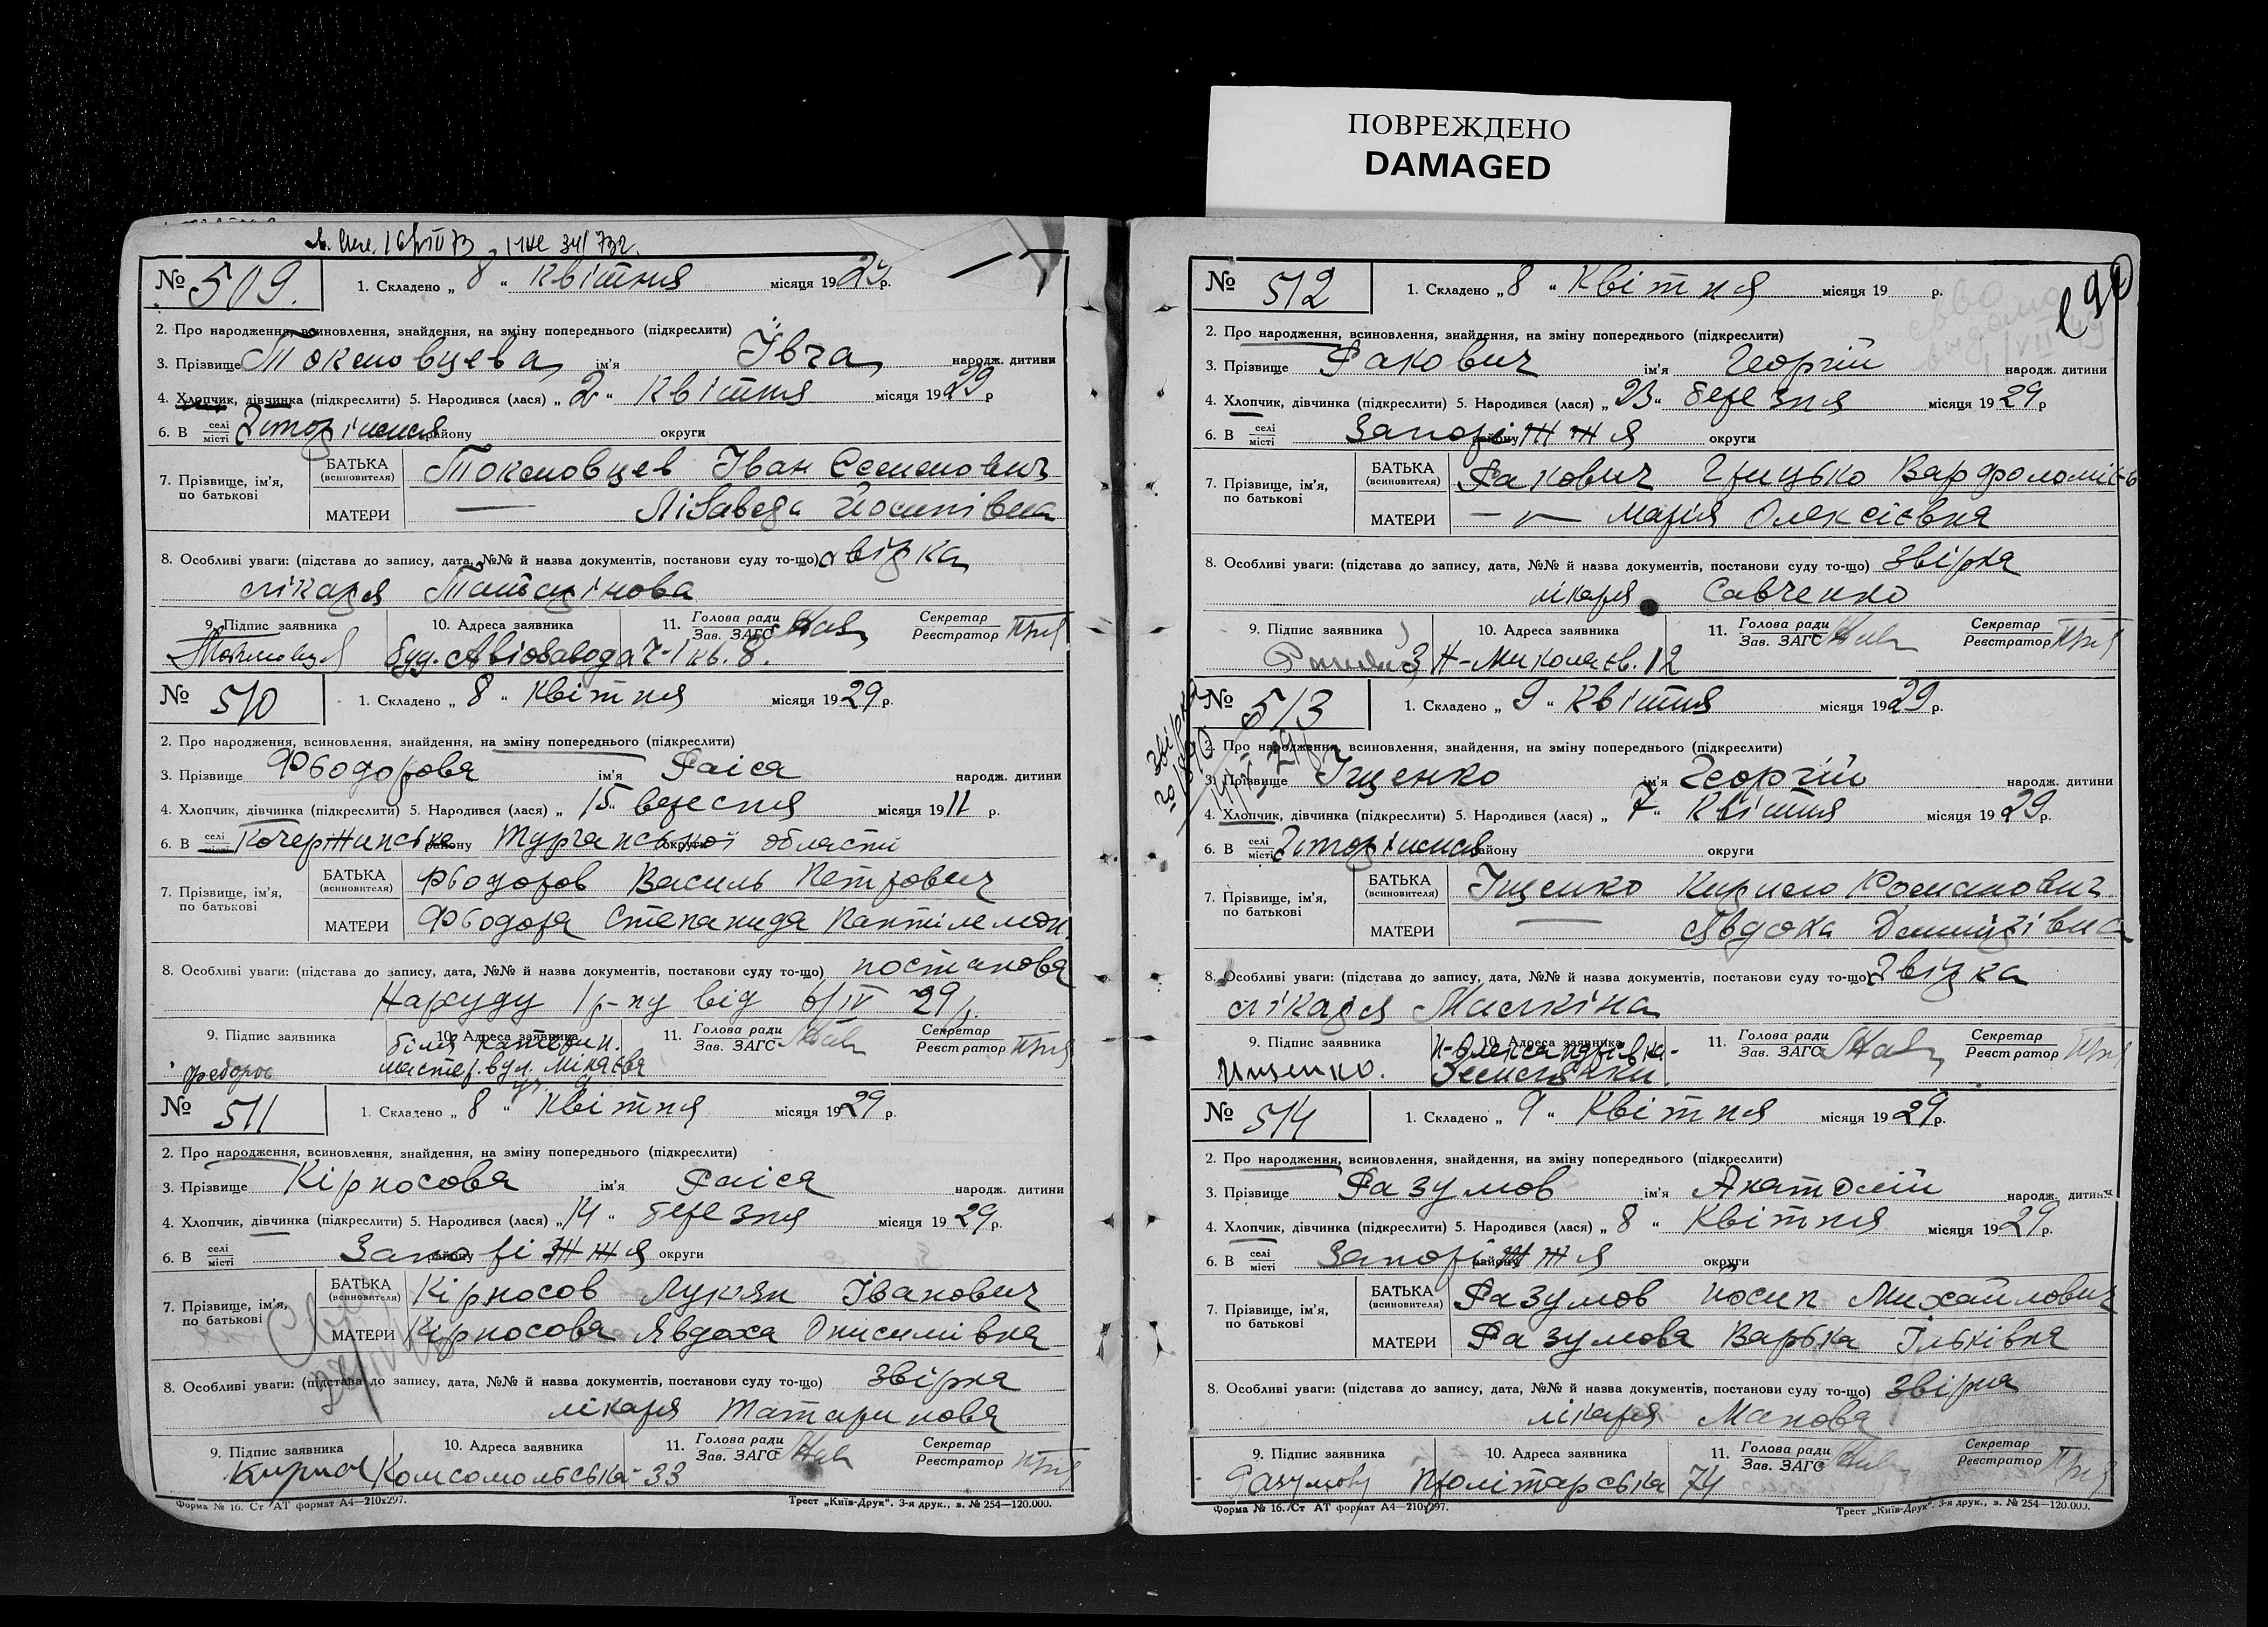 ПОВРЕЖДЕНО
DAMAGED
№ 509. 1. Складено „ 8 “ Квітня місяця 1929 р.
2. Про народження, всиновлення, знайдення, на зміну попереднього (підкреслити)
3. Прізвище ім'я народж. дитини
4. Хлопчик, дівчинка (підкреслити) 5. Народився (лася) „ 2 “ Квітня місяця 1929 р
6. В селі місті району округи
7. Прізвище, ім'я, по батькові БАТЬКА (всиновителя) Іван Семенович
МАТЕРИ — Лізавета Йосипівна
8. Особливі уваги: (підстава до запису, дата, №№ й назва документів, постанови суду то-що)
лікаря Татарінова
9. Підпис заявника 10. Адреса заявника 11. Голова ради Зав. ЗАГС Секретар Реєстратор
буд. Авіозавода кв. 8.
№ 510 1. Складено „ 8 “ Квітня місяця 1929 р.
2. Про народження, всиновлення, знайдення, на зміну попереднього (підкреслити)
3. Прізвище Фьодорова ім'я Раіся народж. дитини
4. Хлопчик, дівчинка (підкреслити) 5. Народився (лася) „ 15 “ вересня місяця 1911 р.
6. В селі місті району округи області
7. Прізвище, ім'я, по батькові БАТЬКА (всиновителя) Фьодоров Василь Петрович
МАТЕРИ Степанида Пантілемон.
8. Особливі уваги: (підстава до запису, дата, №№ й назва документів, постанови суду то-що) постанова
Нарсуду 1 р-ну від 6/IV 29 р.
9. Підпис заявника 10. Адреса заявника 11. Голова ради Зав. ЗАГС Секретар Реєстратор
біля Катерин.
мастер. вул.
№ 511 1. Складено „ 8 “ Квітня місяця 1929 р.
2. Про народження, всиновлення, знайдення, на зміну попереднього (підкреслити)
3. Прізвище Кірносова ім'я Раіся народж. дитини
4. Хлопчик, дівчинка (підкреслити) 5. Народився (лася) „ 14 “ березня місяця 1929 р.
6. В селі місті Запоріжжя району округи
7. Прізвище, ім'я, по батькові БАТЬКА (всиновителя) Кірносов Лукян Іванович
МАТЕРИ Кірносова Явдоха Онисимівна
8. Особливі уваги: (підстава до запису, дата, №№ й назва документів, постанови суду то-що) Звірка
лікаря Татаринова
9. Підпис заявника 10. Адреса заявника 11. Голова ради Зав. ЗАГС Секретар Реєстратор
Комсомольська 33
Форма № 16. Ст АТ формат А4—210х297. Трест „Київ-Друк“. 3-я друк., в. № 254—120.000.
№ 512 1. Складено „ 8 “ Квітня місяця 19 р.
2. Про народження, всиновлення, знайдення, на зміну попереднього (підкреслити)
3. Прізвище Ракович ім'я Георгій народж. дитини
4. Хлопчик, дівчинка (підкреслити) 5. Народився (лася) „ 23 “ березня місяця 1929 р
6. В селі місті Запоріжжя району округи
7. Прізвище, ім'я, по батькові БАТЬКА (всиновителя) Ракович Грицько
МАТЕРИ — „ — Марія Олексієвна
8. Особливі уваги: (підстава до запису, дата, №№ й назва документів, постанови суду то-що) Звірка
лікаря Савченко
9. Підпис заявника 10. Адреса заявника 11. Голова ради Зав. ЗАГС Секретар Реєстратор
Н-Миколаєв. 12
№ 513 1. Складено „ 9 “ Квітня місяця 1929 р.
2. Про народження, всиновлення, знайдення, на зміну попереднього (підкреслити)
3. Прізвище Іщенко ім'я Георгій народж. дитини
4. Хлопчик, дівчинка (підкреслити) 5. Народився (лася) „ 7 “ Квітня місяця 1929 р.
6. В селі місті району округи
7. Прізвище, ім'я, по батькові БАТЬКА (всиновителя) Іщенко Кирило Романович
МАТЕРИ — Явдоха
8. Особливі уваги: (підстава до запису, дата, №№ й назва документів, постанови суду то-що) Звірка
лікаря
9. Підпис заявника 10. Адреса заявника 11. Голова ради Зав. ЗАГС Секретар Реєстратор
Ищенко.
№ 514 1. Складено „ 9 “ Квітня місяця 1929 р.
2. Про народження, всиновлення, знайдення, на зміну попереднього (підкреслити)
3. Прізвище Разумов ім'я Анатолій народж. дитини
4. Хлопчик, дівчинка (підкреслити) 5. Народився (лася) „ 8 “ Квітня місяця 1929 р.
6. В селі місті Запоріжжя району округи
7. Прізвище, ім'я, по батькові БАТЬКА (всиновителя) Разумов Йосип Михайлович
МАТЕРИ Разумова Варька Ільківна
8. Особливі уваги: (підстава до запису, дата, №№ й назва документів, постанови суду то-що) Звірка
лікаря
9. Підпис заявника 10. Адреса заявника 11. Голова ради Зав. ЗАГС Секретар Реєстратор
Пролітарська 74
Форма № 16. Ст АТ формат А4—210х297. Трест „Київ-Друк“. 3-я друк., в. № 254—120.000.